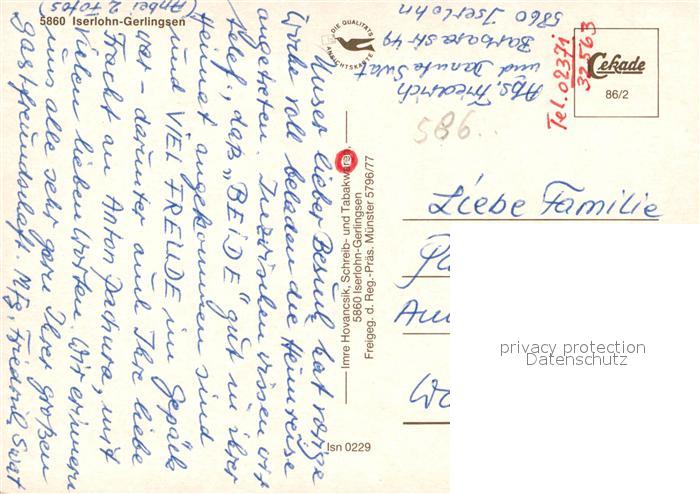 5860 Iserlohn-Gerlingsen
(Anbei 2 Fotos)
Unser lieber Besuch hat vorige
Woche voll beladen die Heimreise
angetreten. Inzwischen wissen wir
telef., daß „BEIDE“ gut in ihrer
Heimat angekommen sind
und VIEL FREUDE im Gepäck
war – darunter auch Ihre liebe
Fracht an Anton Pachura, mit
vielen lieben Worten. Wir erinnern
uns alle sehr gern Ihrer großen
Gastfreundschaft. Mfg, Friedrich Swat
DIE QUALITÄTS
ANSICHTSKARTE
Abs. Friedrich
und Danuta Swat
Barbarastr 49
5860 Iserlohn
Tel. 02371
32563
Cekade
86/2
586..
Imre Hovancsik, Schreib- und Tabakwaren,
5860 Iserlohn-Gerlingsen
Freigeg. d. Reg.-Präs. Münster 5796/77
Isn 0229
Liebe Familie
Am
privacy protection
Datenschutz